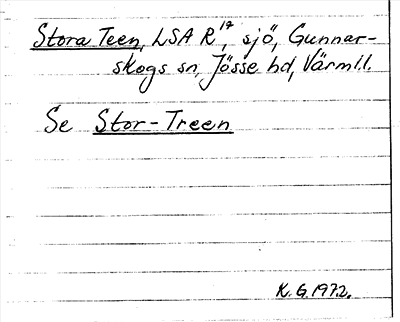 Stora Teen, LSA R 17, sjö, Gunnar-
skogs sn, Jösse hd, Värml.l.
Se Stor-Treen
K.G. 1972.